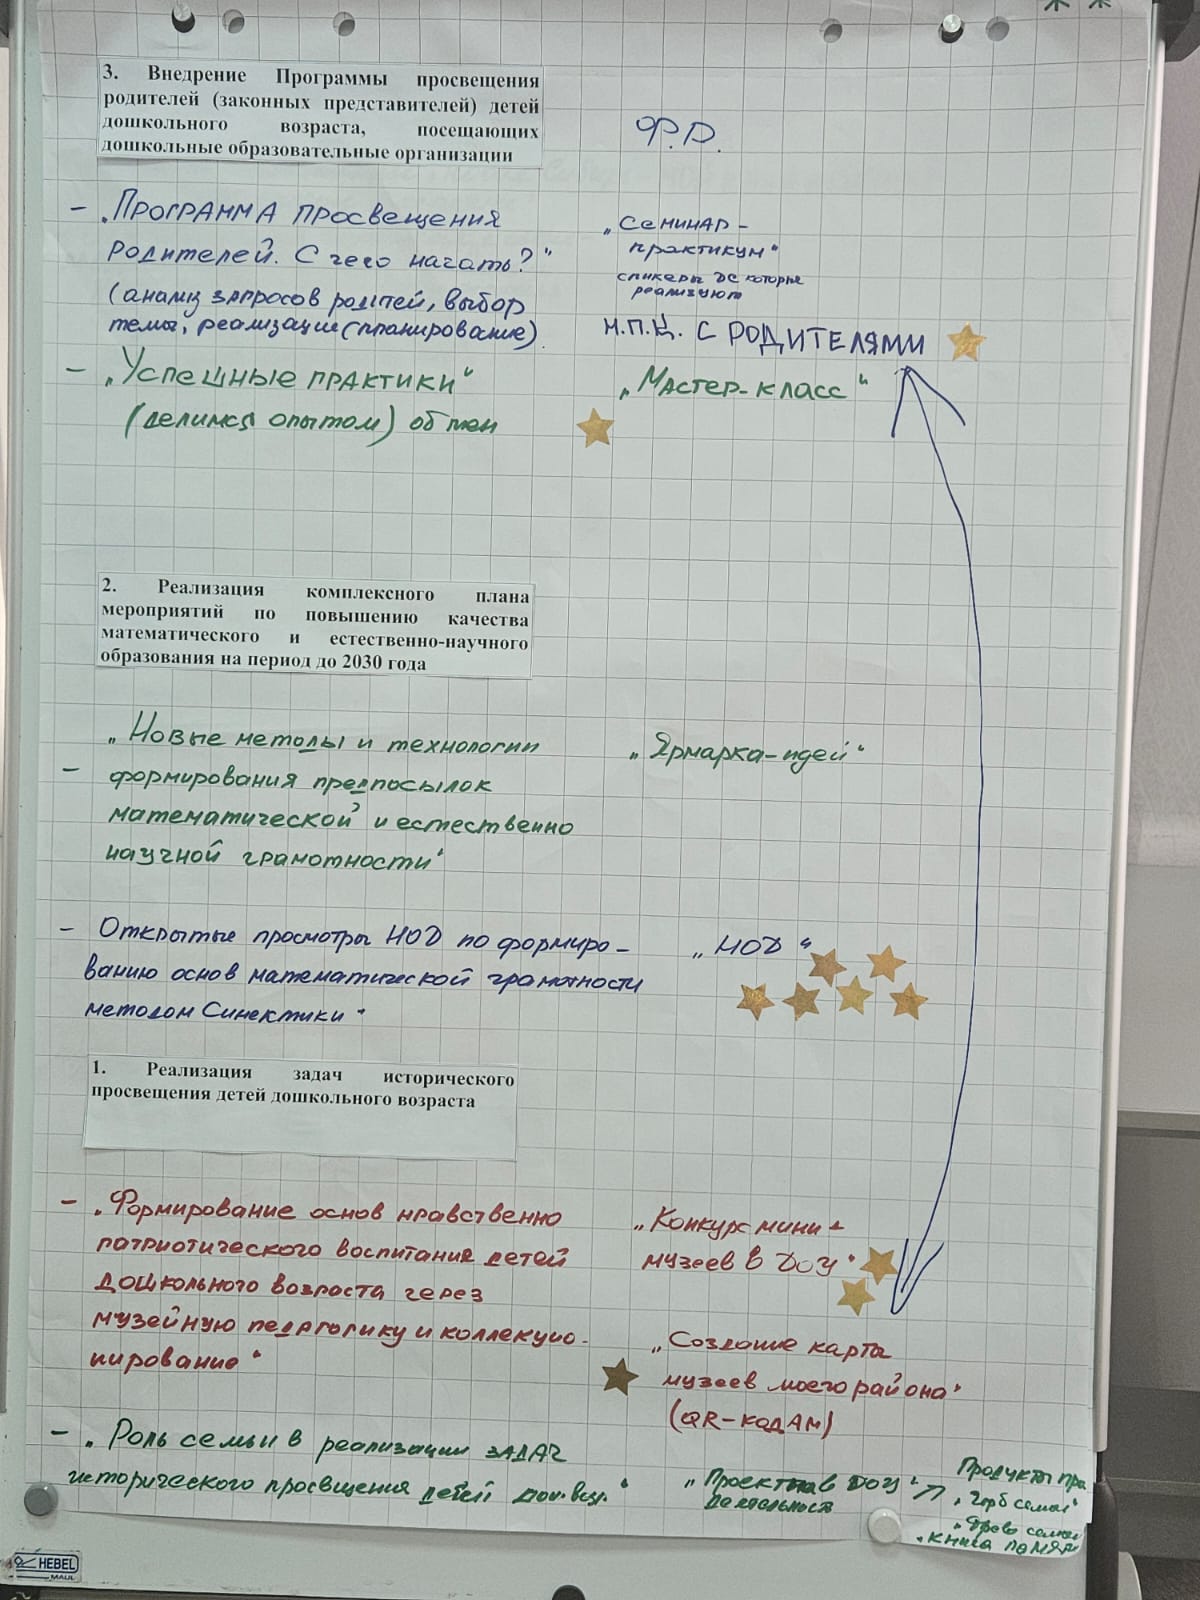 3. Внедрение Программы просвещения
родителей (законных представителей) детей
дошкольного возраста, посещающих
дошкольные образовательные организации
Ф.Р.
- „Программа просвещения
родителей. С чего начать?"
(анализ запросов родителей, выбор
темы, реализация (планирование)
„Семинар-
практикум"
спикеры ДС которые
реализуют
Н.П.Ц. С РОДИТЕЛЯМИ
- „Успешные практики"
(делимся опытом) обмен
„Мастер-класс"
2. Реализация комплексного плана
мероприятий по повышению качества
математического и естественно-научного
образования на период до 2030 года
„Новые методы и технологии
- формирования предпосылок
математической и естественно
научной грамотности"
„Ярмарка-идей"
- Открытые просмотры НОД по формиро-
ванию основ математической грамотности
методом Синектики"
„НОД"
1. Реализация задач исторического
просвещения детей дошкольного возраста
- „Формирование основ нравственно
патриотического воспитания детей
дошкольного возраста через
музейную педагогику и коллекцио-
нирование"
„Конкурс мини-
музеев в ДОУ"
„Создание карты
музеев моего района"
(QR-кодам)
- „Роль семьи в реализации задач
исторического просвещения детей дош. воз."
„Проектная в ДОУ"
деятельность
Продукты
„Герб семьи"
„Древо семьи"
„Книга
HEBEL
MAUL